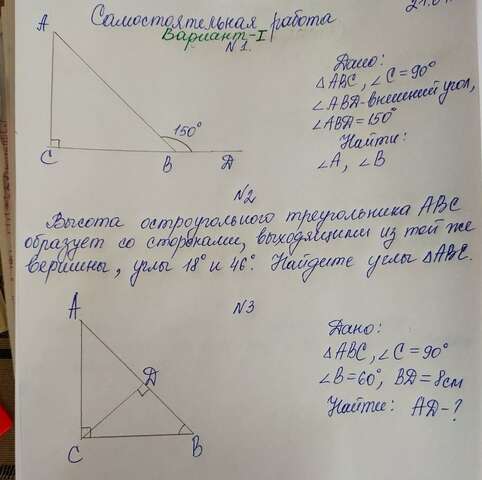 Самостоятельная работа
Вариант-I
N1.
A
C
150°
B
D
Дано:
△ABC, ∠C=90°
∠ABD-внешний угол,
∠ABD=150°
Найти:
∠A, ∠B
N2
Высота остроугольного треугольника ABC
образует со сторонами, выходящими из той же
вершины, углы 18° и 46°. Найдите углы △ABC.
N3
A
D
C
B
Дано:
△ABC, ∠C=90°
∠B=60°, BD=8см
Найти: AD-?